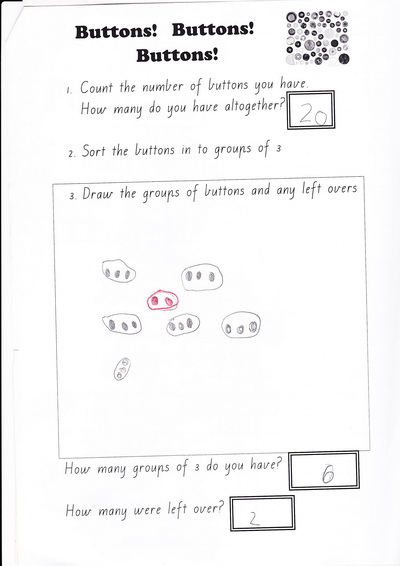 Buttons! Buttons!
Buttons!
1. Count the number of buttons you have.
How many do you have altogether?
20
2. Sort the buttons in to groups of 3
3. Draw the groups of buttons and any left overs
How many groups of 3 do you have?
6
How many were left over?
2